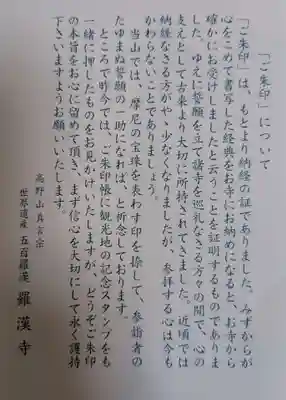 「ご朱印」について
「ご朱印」は、もとより納経の証でありました。みずからが
心をこめて書写した経典をお寺にお納めになると、お寺から
確かにお受けしましたと云うことを証明するものでありま
した。ゆえに誓願を立て諸寺を巡礼なさる方々の間で、心の
支えとして古来より大切に所持されてきました。近頃では
納経なさる方がやゝ少なくなりましたが、参拝する心は今も
かわらないことでありましょう。
当山では、摩尼の宝珠を表わす印を捺して、参詣者の
たゆまぬ誓願の一助になれば、と祈念しております。
ところで昨今では、ご朱印帳に観光地の記念スタンプをも
一緒に押したものをお見かけいたしますが、どうぞご朱印
の本旨をお心に留めて頂き、まず信心を大切にして永く護持
下さいますようお願いいたします。
高野山真言宗
世界遺産 五百羅漢 羅漢寺